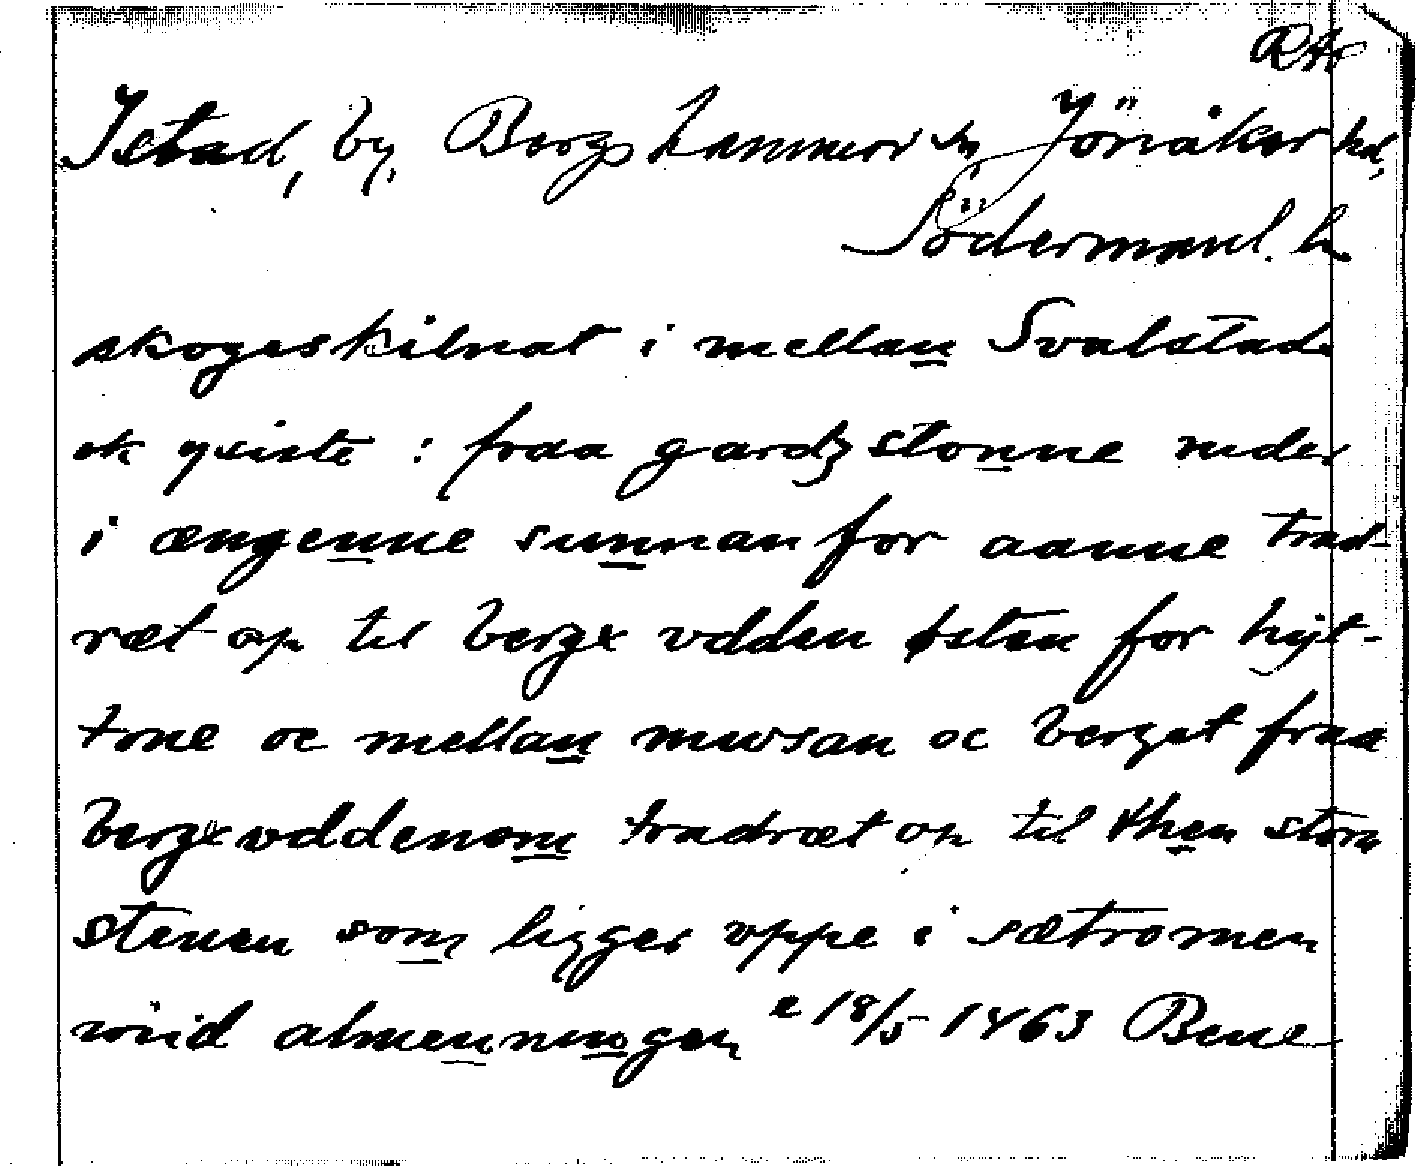 Istad, by, Bergshammar sn Jönåker hd,
Södermanl. l.
skogeskilnat i mellan Svalstada
ok ysista : fraa gardz stonne nider
i ængenne sunnan for aanne trad-
ræt op til bergx vdden østen for hyt-
tone oc mellan mwsan oc berget fraa
bergxvddenom tradræt op til then stora
stenen som ligger vppe i sætromen
wiid almenningen e 18/5 1463 Bene